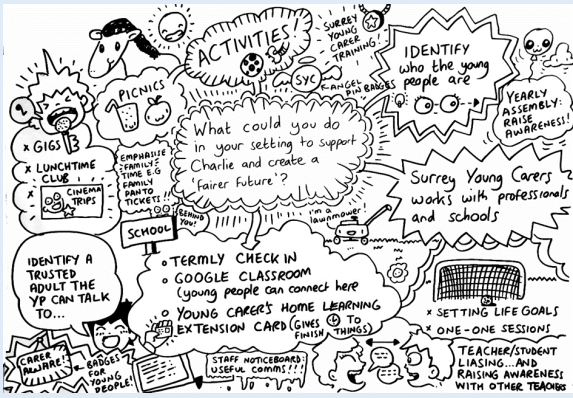 ACTIVITIES
SURREY
YOUNG
CARER
TRAINING!
SYC
ANGEL
PIN BADGES
IDENTIFY
who the young
people are
YEARLY
ASSEMBLY:
RAISE
AWARENESS!
PICNICS
x GIGS
x LUNCHTIME
CLUB
x CINEMA
TRIPS
EMPHASISE
'FAMILY'
TIME E.G
FAMILY
PANTO
TICKETS!!
BEHIND
YOU!
What could you do
in your setting to support
Charlie and create a
'fairer future'?
Surrey Young Carers
works with professionals
and schools
i'm a
lawnmower!
SCHOOL
• TERMLY CHECK IN
• GOOGLE CLASSROOM
(young people can connect here
• YOUNG CARER'S HOME LEARNING
EXTENSION CARD (GIVES TO
FINISH THINGS)
IDENTIFY A
TRUSTED
ADULT THE
YP CAN TALK
TO...
x SETTING LIFE GOALS
x ONE-ONE SESSIONS
CARER
AWARE!
BADGES
FOR
YOUNG
PEOPLE!
STAFF NOTICEBOARD:
USEFUL COMMS!!!
TEACHER/STUDENT
LIASING...AND
RAISING AWARENESS
WITH OTHER TEACHERS